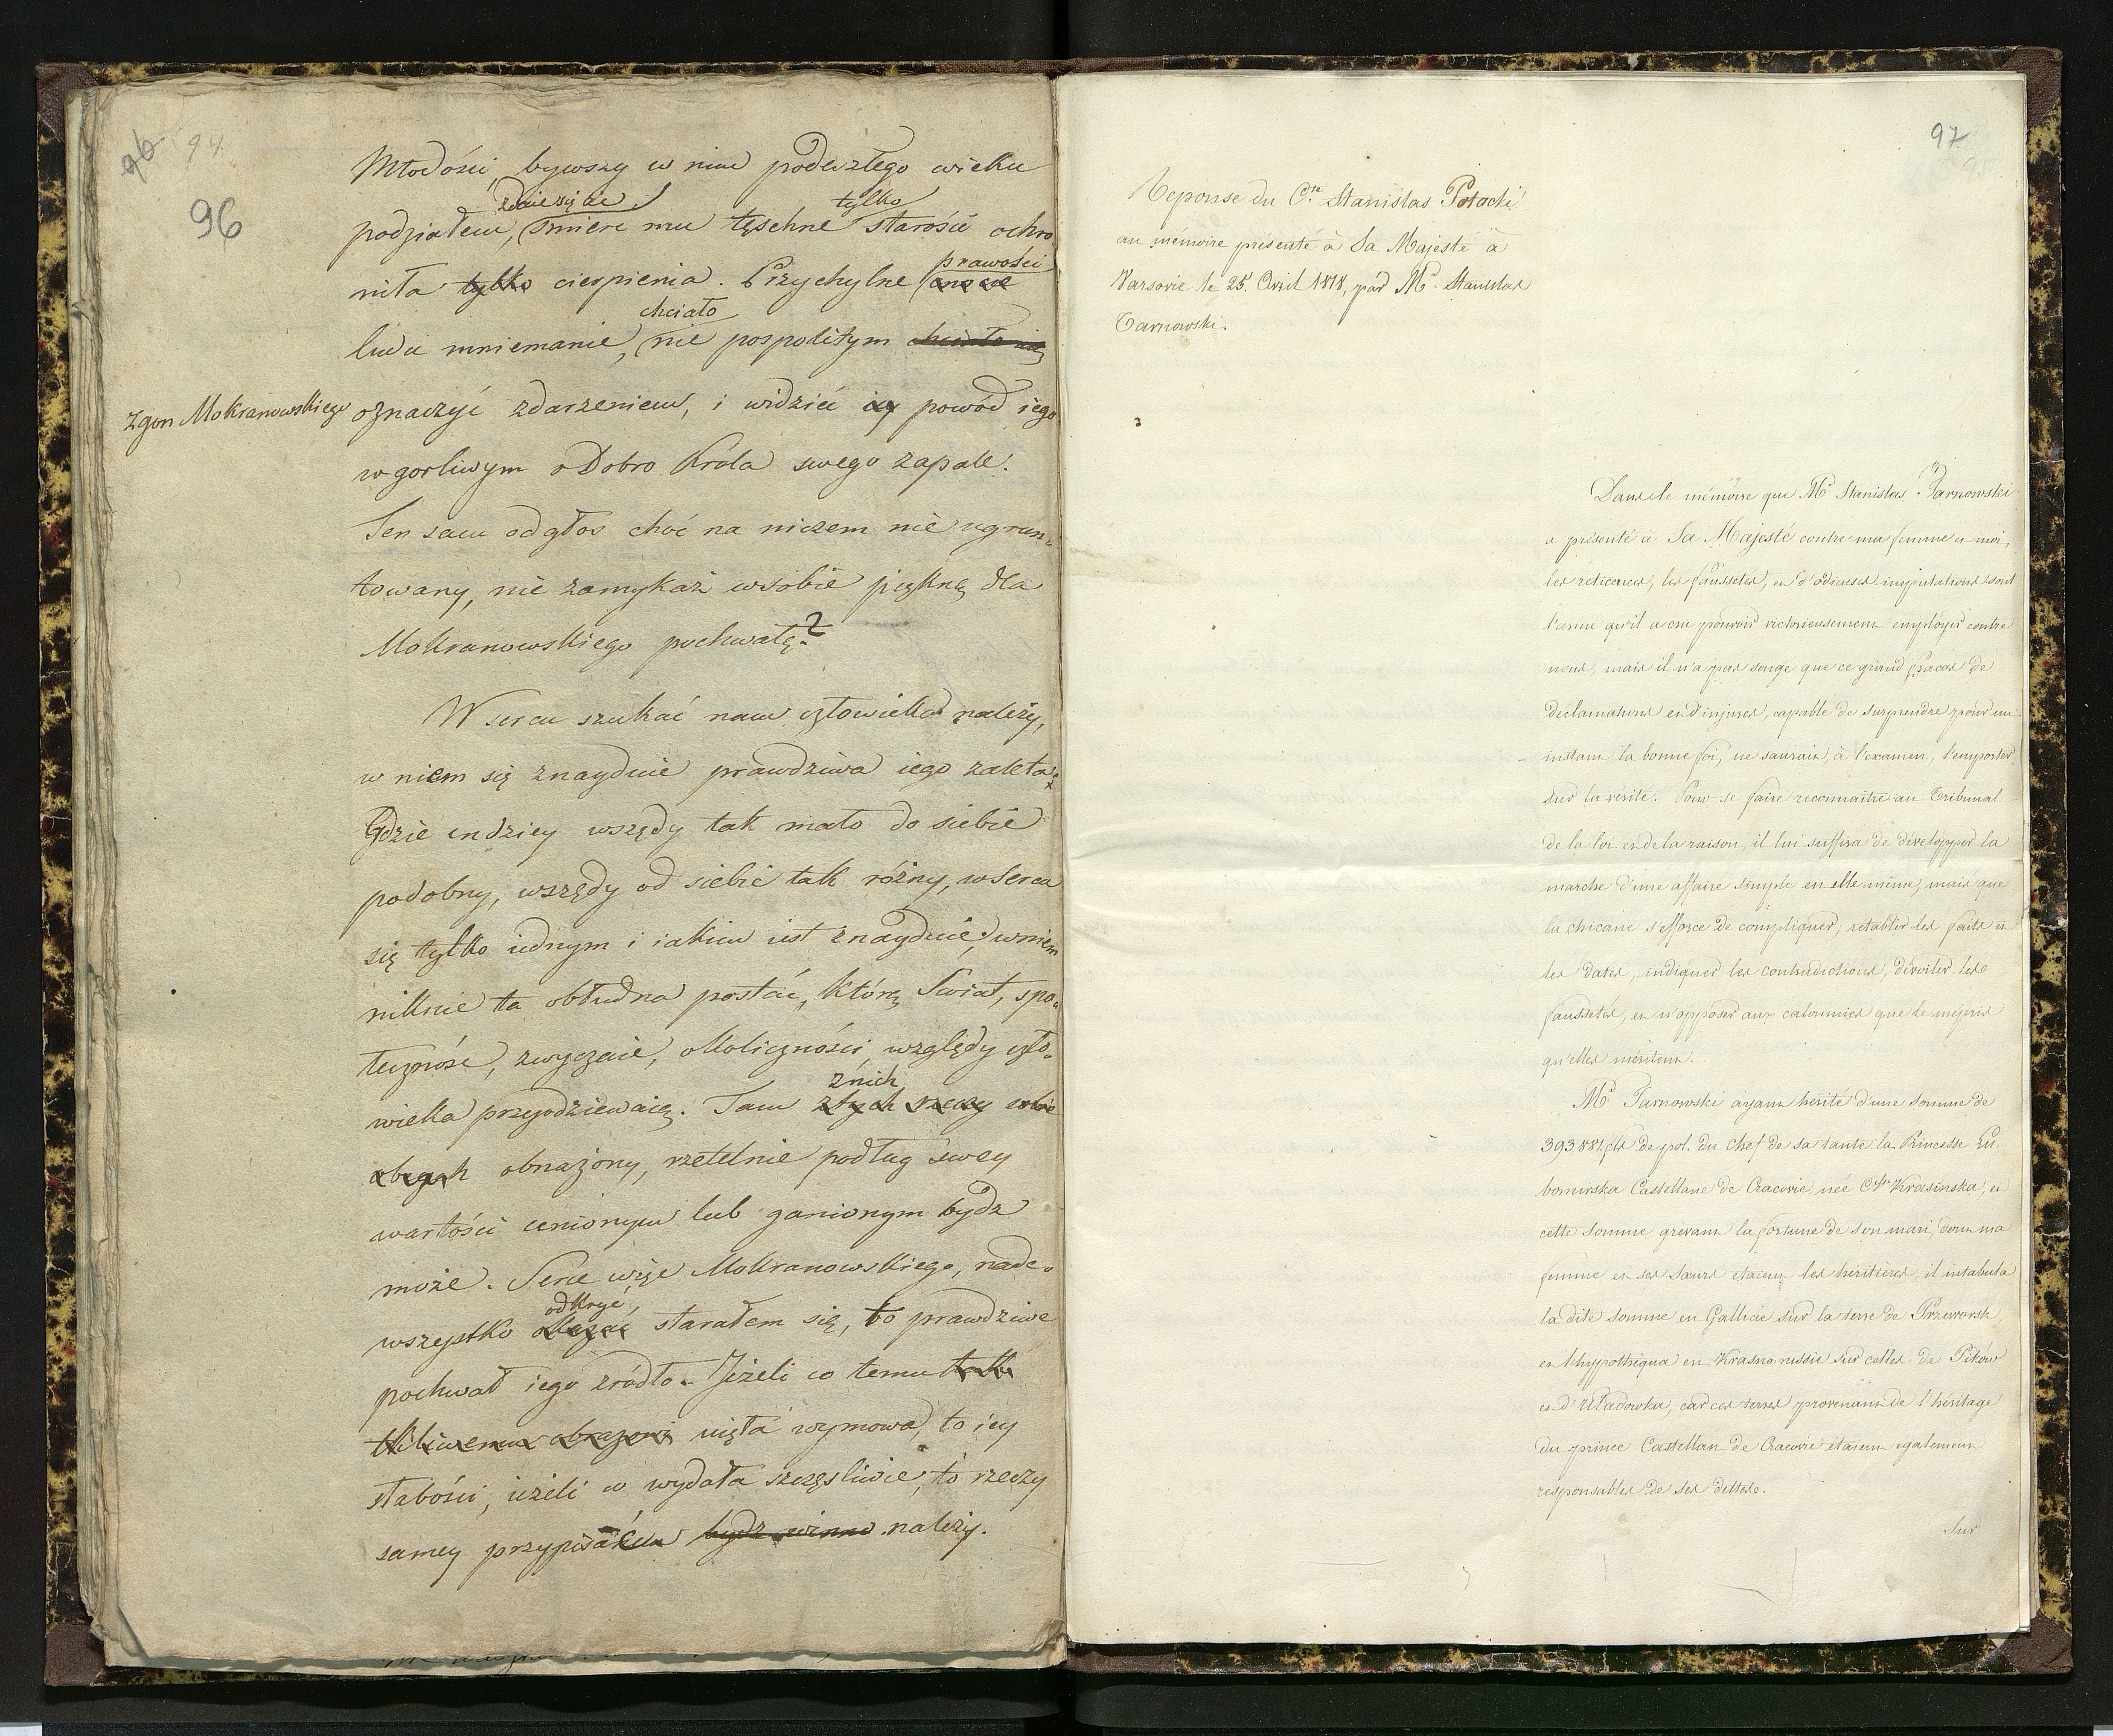 96 94
96
Młodości, bywszy w nim podeszłego wieku
zdaie się że tylko
podziałem, śmierć mu tęschne starości ochro-
prawości
niła tylko cierpienia. Przychylne
chciało
ludu mniemanie, nie pospolitym
Zgon Mokranowskiego
oznaczyć zdarzeniem, i widzieć powód iego
w gorliwym o Dobro Króla swego zapale.
Ten sam odgłos choć na niczem nie ugrun-
towany, nie zamykaż w sobie piękną dla
Mokranowskiego pochwałę?
W sercu szukać nam człowieka należy,
w niem się znayduie prawdziwa iego zaleta:
Gdzie indziey wszędy tak mało do siebie
podobny, wszędy od siebie tak różny, w sercu
się tylko iednym i iakim iest znayduie, w niem
niknie ta obłudna postać, którą Swiat, spo-
łeczność, zwyczaie, okoliczności, względy czło-
z nich
wieka przyodziewaią. Tam złych rzeczy
obnażony, rzetelnie podług swey
wartości cenionym lub ganionym bydz
może. Serce więc Mokranowskiego, nade-
odkryć,
wszystko okazać starałem się, to prawdziwe
pochwał iego zródło. Jeżeli co temu
tkliwemu obrazowi uięła wymowa, to iey
słabości, ieżeli co wydała szczęsliwie, to rzeczy
samey przypisać bydz winno należy.
97
Reponse du Cte Stanislas Potocki
au mémoire présenté à Sa Majesté à
Varsovie le 25. Avril 1818, par Mr. Stanislas
Tarnowski.
Dans le mémoire que Mr Stanislas Tarnowski
a présenté à Sa Majesté contre ma femme et moi,
les réticences, les faussetés, et d'odieuses imputations sont
l'arme qu'il a cru pouvoir victorieusement employer contre
nous, mais il n'a pas songé que ce grand fracas de
déclamations et d'injures, capable de surprendre pour un
instant la bonne foi, ne saurait, à l'examen, l'emporter
sur la vérité. Pour se faire reconnaitre au Tribunal
de la loi et de la raison, il lui suffira de développer la
marche d'une affaire simple en elle même, mais que
la chicane s'efforce de compliquer, rétablir les faits et
les dates, indiquer les contradictions, dévoiler les
faussetés, et n'opposer aux calomnies que le mépris
qu'elles méritent.
Mr Tarnowski ayant hérité d'une somme de
393881 fls de pol. du chef de sa tante la Princesse Lu
bomirska Castellane de Cracovie née Ctsse Krasinska, et
cette somme grevant la fortune de son mari, dont ma
femme et ses sœurs étaient les héritières, il intabula
la dite somme en Gallicie sur la terre de Przeworsk
et l'hyppothéqua en Krasno-russie sur celles de Pików
et d'Uładowka, car ces terres provenant de l'héritage
du prince Castellan de Cracovie étaient également
responsables de ses dettes.
Sur